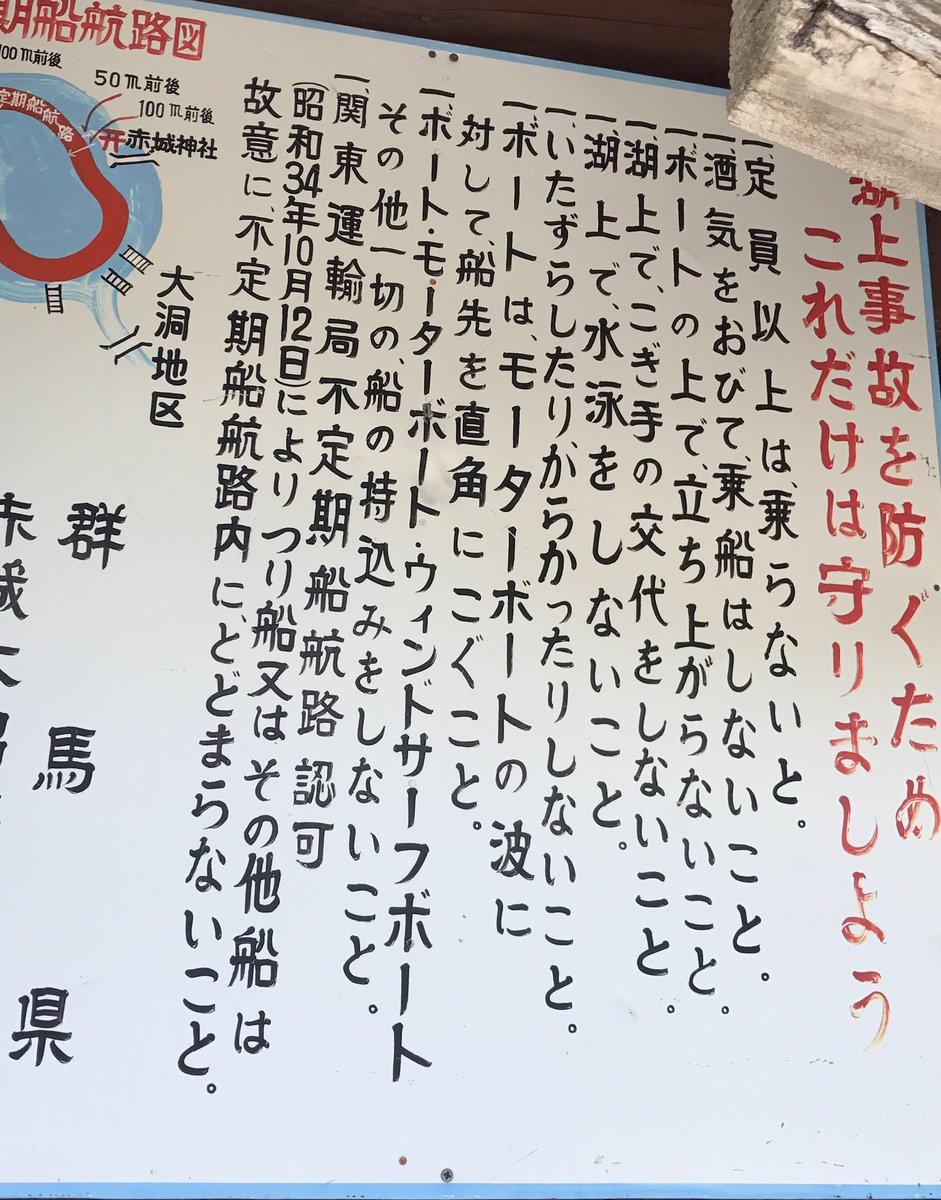 湖上事故を防ぐため
これだけは守りましょう
一、定員以上は、乗らないと。
一、酒気をおびて、乗船はしないこと。
一、ボートの上で、立ち上がらないこと。
一、湖上で、こぎ手の交代をしないこと。
一、湖上で、水泳をしないこと。
一、いたずらしたり、からかったりしないこと。
一、ボートは、モーターボートの波に
対して、船先を直角にこぐこと。
一、ボート・モーターボート・ウィンドサーフボート
その他一切の、船の持込みをしないこと。
一、関東運輸局不定期船航路認可
(昭和34年10月12日)によりつり船又はその他船は
故意に、不定期船航路内に、とどまらないこと。
期船航路図
100m前後
50m前後
100m前後
定期船航路
赤城神社
大洞地区
群馬県
赤城大